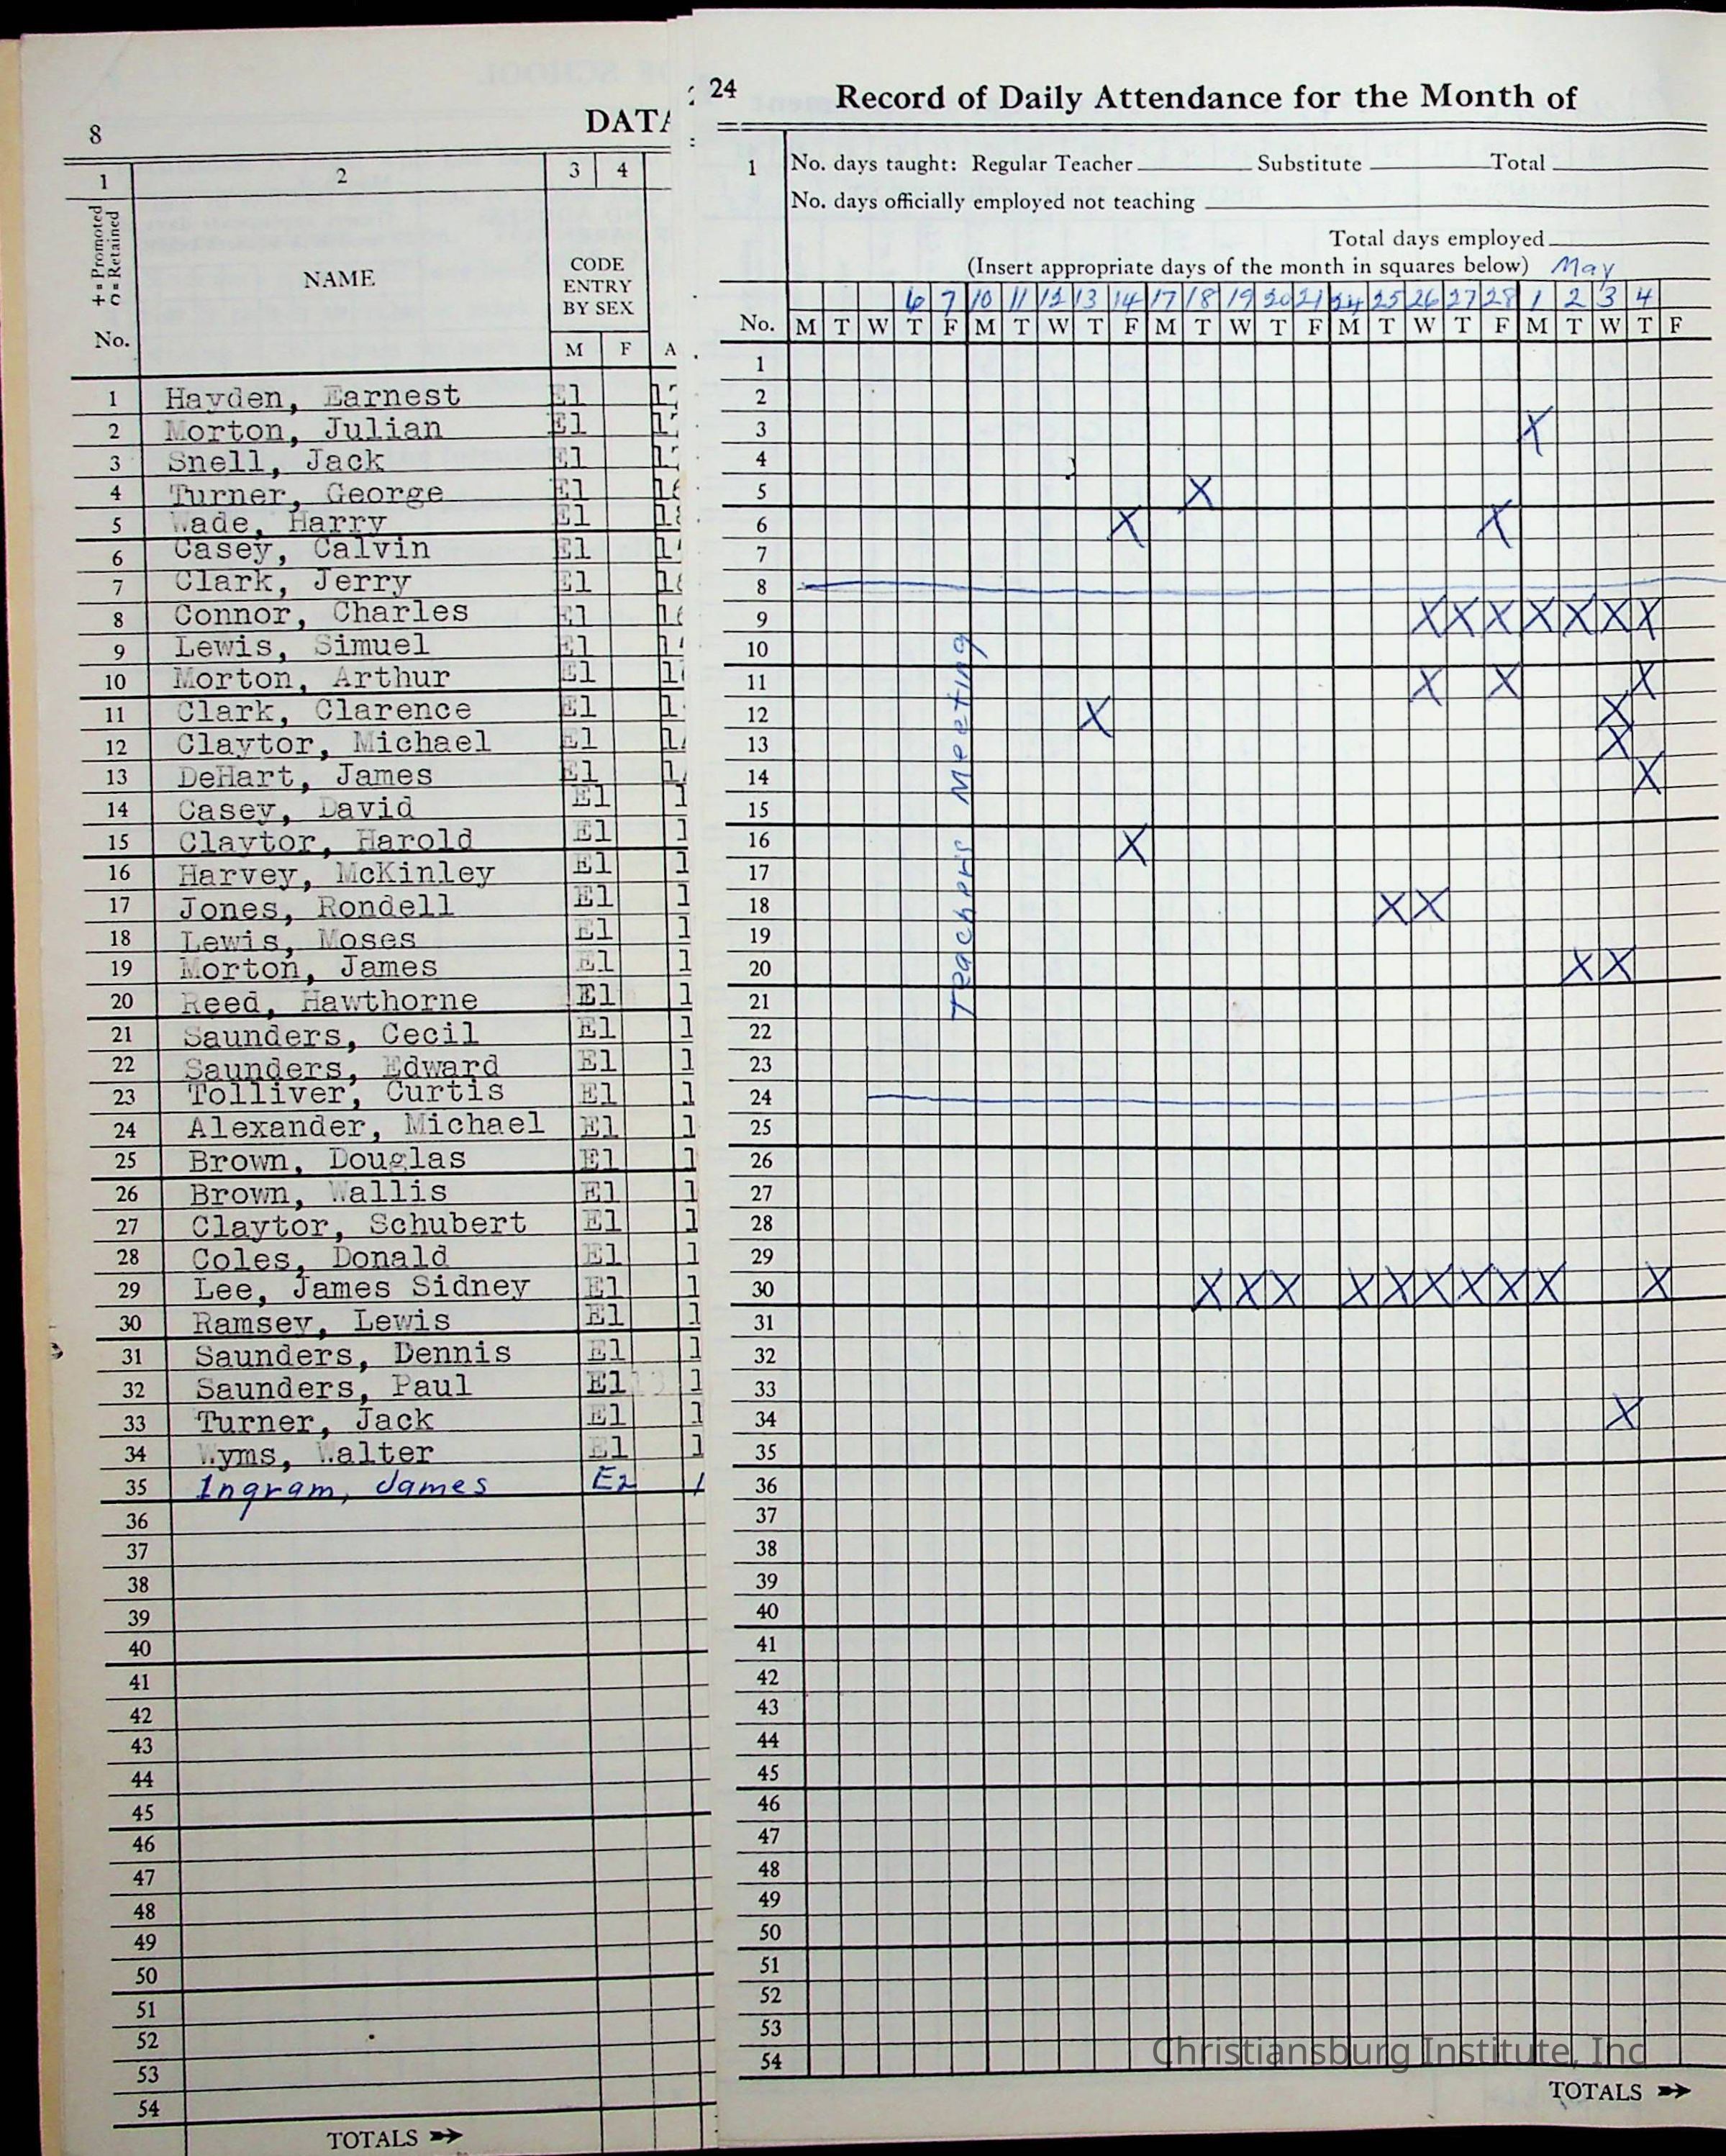 8
DATA
1 2 3 4
+ = Promoted
∩ = Retained
No.
NAME
CODE
ENTRY
BY SEX
M F A
1 Hayden, Earnest El
2 Morton, Julian El
3 Snell, Jack El
4 Turner, George El
5 Wade, Harry El
6 Casey, Calvin El
7 Clark, Jerry El
8 Connor, Charles El
9 Lewis, Simuel El
10 Morton, Arthur El
11 Clark, Clarence El
12 Claytor, Michael El
13 DeHart, James El
14 Casey, David El
15 Claytor, Harold El
16 Harvey, McKinley El
17 Jones, Rondell El
18 Lewis, Moses El
19 Morton, James El
20 Reed, Hawthorne El
21 Saunders, Cecil El
22 Saunders, Edward El
23 Tolliver, Curtis El
24 Alexander, Michael El
25 Brown, Douglas El
26 Brown, Wallis El
27 Claytor, Schubert El
28 Coles, Donald El
29 Lee, James Sidney El
30 Ramsey, Lewis El
31 Saunders, Dennis El
32 Saunders, Paul El
33 Turner, Jack El
34 Wyms, Walter El
35 Ingram, James E2
36
37
38
39
40
41
42
43
44
45
46
47
48
49
50
51
52
53
54
TOTALS
24
Record of Daily Attendance for the Month of
1 No. days taught: Regular Teacher Substitute Total
No. days officially employed not teaching
Total days employed
(Insert appropriate days of the month in squares below) May
6 7 10 11 12 13 14 17 18 19 20 21 24 25 26 27 28 1 2 3 4
No. M T W T F M T W T F M T W T F M T W T F M T W T F
1
2
3 X
4
5 X
6 X X
7
8
9 X X X X X X X
10
11 X X X
12 X X
13 X
14 X
15
16 X
17
18 X X
19
20 X X
21
22
23
24
25
26
27
28
29
30 X X X X X X X X X X
31
32
33
34 X
35
36
37
38
39
40
41
42
43
44
45
46
47
48
49
50
51
52
53
54
Teachers Meeting
TOTALS
Christiansburg Institute, Inc